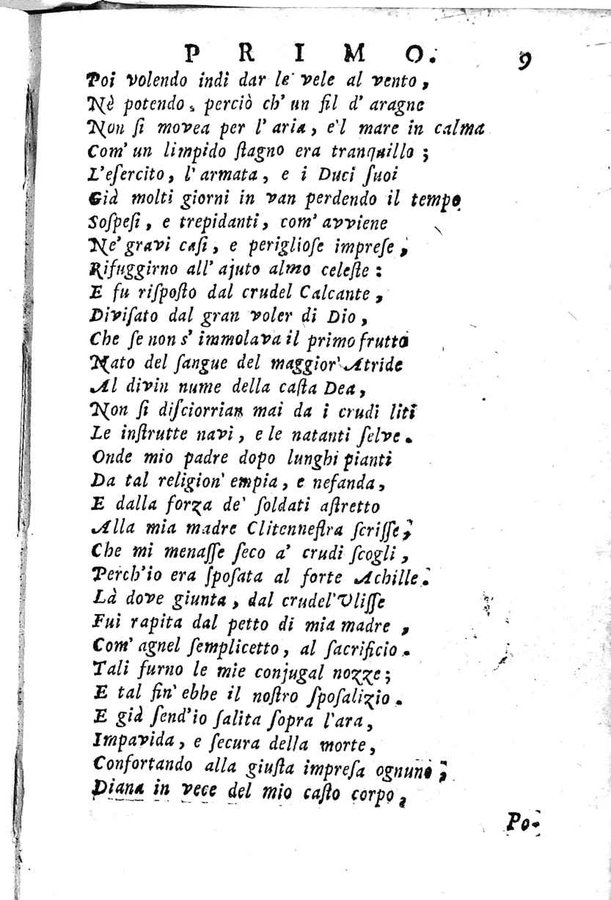 PRIMO. 9
Poi volendo indi dar le vele al vento,
Nè potendo, perciò ch' un fil d' aragne
Non ſi movea per l' aria, e'l mare in calma
Com' un limpido ſtagno era tranquillo;
L'eſercito, l' armata, e i Duci ſuoi
Già molti giorni in van perdendo il tempo
Soſpeſi, e trepidanti, com' avviene
Ne' gravi caſi, e periglioſe impreſe,
Rifuggirno all' ajuto almo celeſte:
E fu riſpoſto dal crudel Calcante,
Diviſato dal gran voler di Dio,
Che ſe non s' immolava il primo frutto
Nato del ſangue del maggior' Atride
Al divin nume della caſta Dea,
Non ſi diſciorrian mai da i crudi liti
Le inſtrutte navi, e le natanti ſelve.
Onde mio padre dopo lunghi pianti
Da tal religion' empia, e nefanda,
E dalla forza de' ſoldati aſtretto
Alla mia madre Clitenneſtra ſcriſſe,
Che mi menaſſe ſeco a' crudi ſcogli,
Perch'io era ſpoſata al forte Achille.
Là dove giunta, dal crudel' Uliſſe
Fui rapita dal petto di mia madre,
Com' agnel ſemplicetto, al ſacrificio.
Tali furno le mie conjugal nozze;
E tal fin' ebbe il noſtro ſpoſalizio.
E già ſend'io ſalita ſopra l'ara,
Impavida, e ſecura della morte,
Confortando alla giuſta impreſa ognuno;
Diana in vece del mio caſto corpo,
Po-